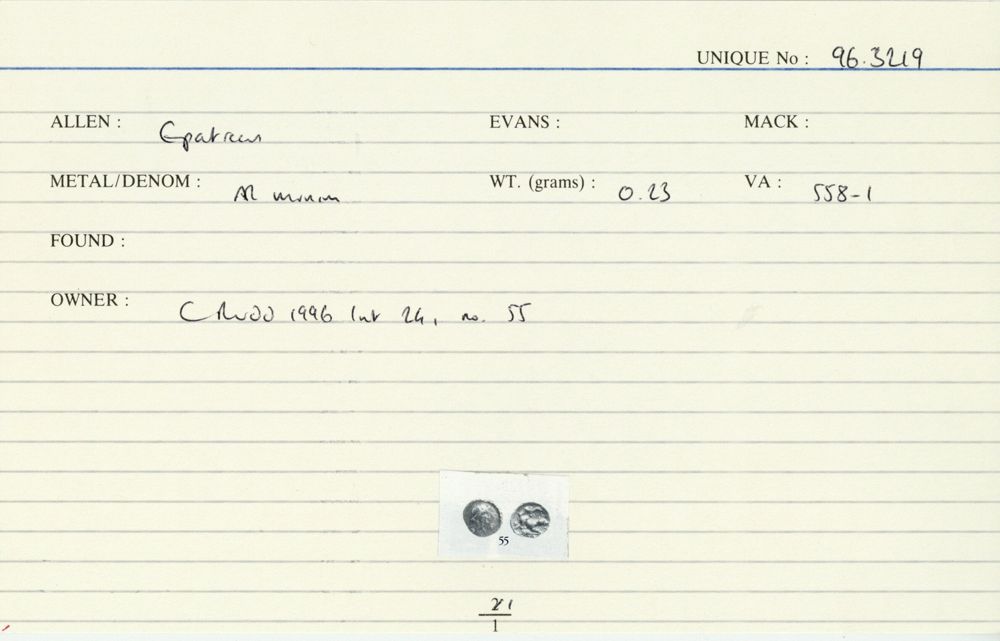 UNIQUE No : 96.3219
ALLEN : Epaticcus EVANS : MACK :
METAL/DENOM : AR minim WT. (grams) : 0.23 VA : 558-1
FOUND :
OWNER : C Rudd 1996 list 24, no. 55
55
1